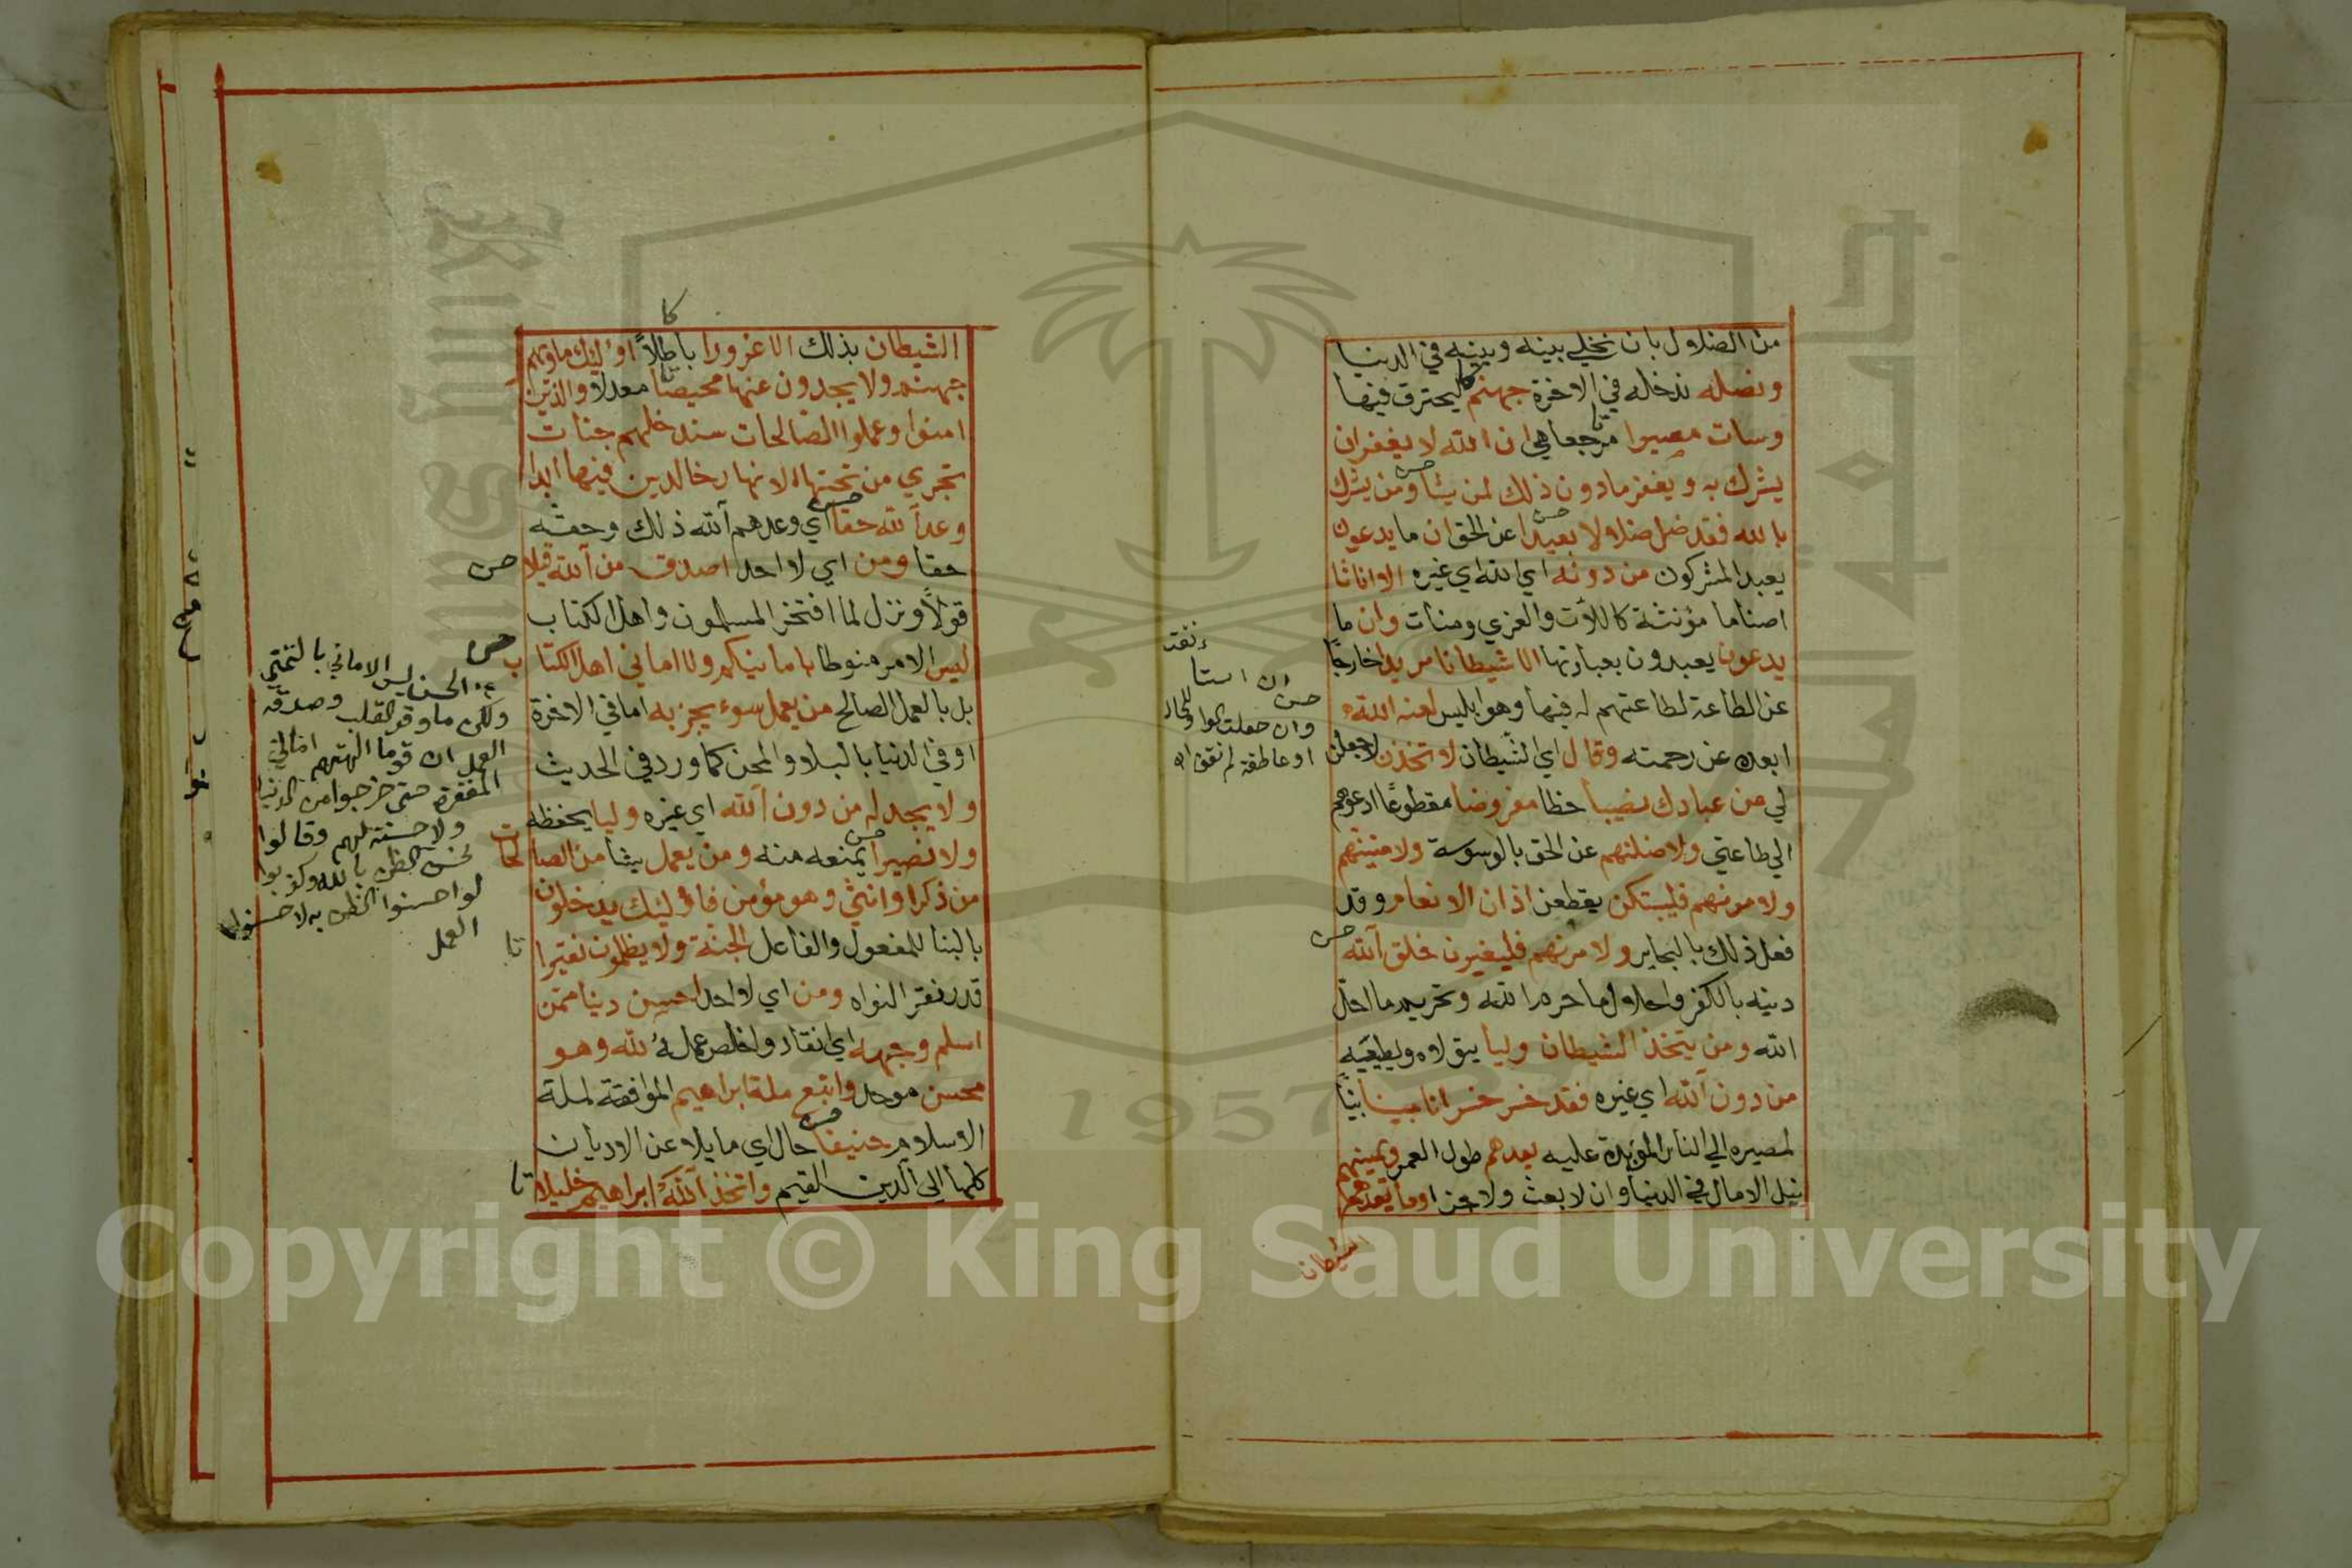 من الضلال بان نخلي بينه وبينه في الدنيا
ونصله ندخله في الاخرة جهنم ليحترق فيها
وسات مصيرا مرجعا هي ان الله لا يغفر ان
يشرك به ويغفر مادون ذلك لمن يشا ومن يشرك
بالله فقد ضل ضلالا بعيدا عن الحق ان ما يدعون
يعبد المشركون من دونه اي الله اي غيره الا اناثا
اصناما مؤنثة كاللات والعزي ومنات وان ما
يدعون يعبدون بعبادتها الا شيطانا مريدا خارجا
عن الطاعة لطاعتهم له فيها وهو ابليس لعنه الله
ابعده عن رحمته وقال اي الشيطان لاتخذن لاجعلن
لي من عبادك نصيبا حظا مفروضا مقطوعا ادعوهم
الي طاعتي ولاضلنهم عن الحق بالوسوسة ولامنينهم
ولامرنهم فليبتكن يقطعن اذان الانعام وقد
فعل ذلك بالبحاير ولامرنهم فليغيرن خلق الله
دينه بالكفر واحلال ما حرم الله وتحريم ما احل
الله ومن يتخذ الشيطان وليا يتولاه ويطيعه
من دون الله اي غيره فقد خسر خسرانا مبينا بينا
لمصيره الي النار المؤبدة عليه يعدهم طول العمر ويمنيهم
نيل الامال في الدنيا وان لا بعث ولا جزا وما يعدهم
الشيطان
حسن
وان جعلت الواو للحال
او عاطفة لم تقف اه
كا
الشيطان بذلك الا غرورا باطلا اوليك ماوهم
جهنم ولا يجدون عنها محيصا معدلا والذين
امنوا وعملوا الصالحات سندخلهم جنات
تجري من تحتها الانهار خالدين فيها ابدا
وعد الله حقا اي وعدهم الله ذلك وحقه
حقا ومن اي لا احد اصدق من الله قيلا حسن
قولا ونزل لما افتخر المسلمون واهل الكتاب
ليس الامر منوطا بامانيكم ولا اماني اهل الكتاب
بل بالعمل الصالح من يعمل سوء يجز به اما في الاخرة
او في الدنيا بالبلا والمحن كما ورد في الحديث
ولا يجد له من دون الله اي غيره وليا يحفظه
ولا نصيرا يمنعه منه ومن يعمل شيا من الصالحات
من ذكر او انثي وهو مؤمن فاوليك يدخلون
بالبنا للمفعول والفاعل الجنة ولا يظلمون نقيرا تا
قدر نقر النواه ومن اي لا احد احسن دينا ممن
اسلم وجهه اي انقاد واخلص عمله لله وهو
محسن موحد واتبع ملة ابراهيم الموافقة لملة
الاسلام حنيفا حال اي مايلا عن الاديان
كلها الي الدين القيم واتخذ الله ابراهيم خليلا تا
عن الحسن ليس الاماني بالتمني
ولكن ما وقر القلب وصدقه
العمل ان قوما الهتهم اماني
المغفرة حتى خرجوا من الدنيا
ولا حسنة لهم وقالوا
نحسن الظن بالله وكذبوا
لو احسنوا الظن به لاحسنوا
العمل
1957
Copyright © King Saud University